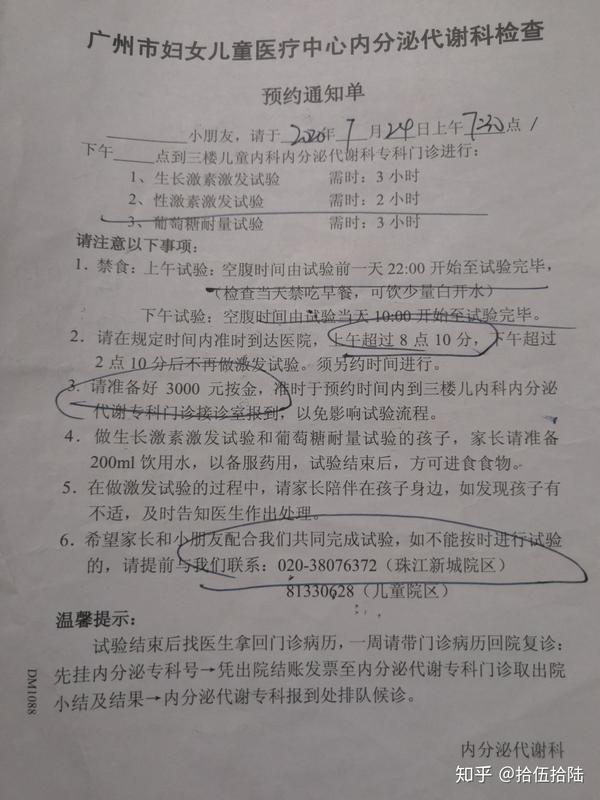 广州市妇女儿童医疗中心内分泌代谢科检查
预约通知单
________小朋友，请于2020年7月24日上午7:30点
下午____点到三楼儿童内科内分泌代谢科专科门诊进行：
1、生长激素激发试验 需时：3 小时
2、性激素激发试验 需时：2 小时
3、葡萄糖耐量试验 需时：3 小时
请注意以下事项：
1．禁食：上午试验：空腹时间由试验前一天 22:00 开始至试验完毕，
（检查当天禁吃早餐，可饮少量白开水）
下午试验：空腹时间由试验当天 10:00 开始至试验完毕。
2．请在规定时间内准时到达医院，上午超过 8 点 10 分，下午超过
2 点 10 分后不再做激发试验。须另约时间进行。
3．请准备好 3000 元按金，准时于预约时间内到三楼儿内科内分泌
代谢专科门诊接诊室报到，以免影响试验流程。
4．做生长激素激发试验和葡萄糖耐量试验的孩子，家长请准备
200ml 饮用水，以备服药用，试验结束后，方可进食食物。
5．在做激发试验的过程中，请家长陪伴在孩子身边，如发现孩子有
不适，及时告知医生作出处理。
6．希望家长和小朋友配合我们共同完成试验，如不能按时进行试验
的，请提前与我们联系：020-38076372（珠江新城院区）
81330628（儿童院区）
温馨提示：
试验结束后找医生拿回门诊病历，一周请带门诊病历回院复诊：
先挂内分泌专科号→凭出院结账发票至内分泌代谢专科门诊取出院
小结及结果→内分泌代谢专科报到处排队候诊。
DM1088
内分泌代谢科
知乎 @拾伍拾陆